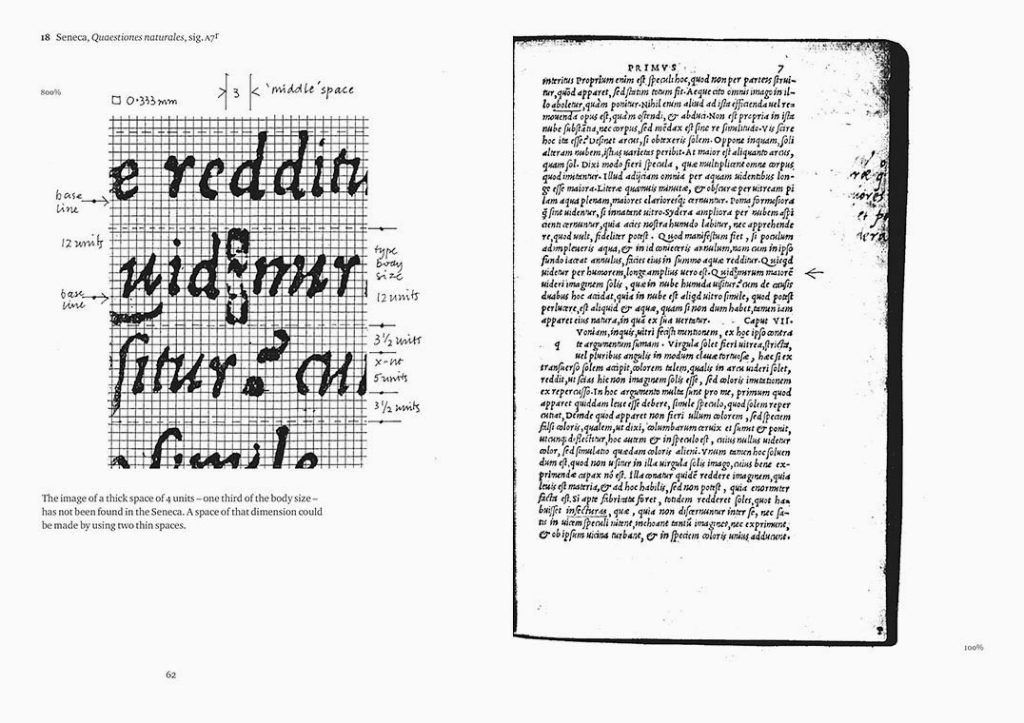 18 Seneca, Quaestiones naturales, sig. A7r
800%
0.333 mm
3
'middle' space
e redditu
base line
12 units
uid mur
type body size
12 units
base line
3 1/2 units
x-ht
5 units
3 1/2 units
situr.? cu
simile
The image of a thick space of 4 units – one third of the body size –
has not been found in the Seneca. A space of that dimension could
be made by using two thin spaces.
62
PRIMVS 7
interitus Proprium enim est speculi hoc, quod non per partes strui-
tur, quod apparet, sed statim totum fit. Aeque cito omnis imago in il-
lo aboletur, quàm ponitur. Nihil enim aliud ad ista efficienda uel re
mouenda opus est, quàm ostendi, & abduci. Non est propria in ista
nube substātia, nec corpus, sed mēdax est sine re similitudo. Vis scire
hoc ita esse? Desinet arcus, si obtexeris solem. Oppone inquam, soli
alteram nubem, istius uarietas peribit. At maior est aliquanto arcus,
quam sol. Dixi modo fieri specula, quae multiplicent omne corpus
quod imitantur. Illud adijciam omnia per aquam uidentibus lon-
ge esse maiora. Literae quamuis minutae, & obscurae per uitream pi
lam aqua plenam, maiores clarioresq; cernuntur. Poma formosiora
q̃ sint uidentur, si innatant uitro. Sydera ampliora per nubem aspi
cienti cernuntur, quia acies nostra humido labitur, nec apprehende
re, quod uult, fideliter potest. Quod manifestum fiet, si poculum
adimpleueris aqua, & in id conieceris annulum, nam cum in ipso
fundo iaceat annulus, facies eius in summo aquae redditur. Quicqd
uidetur per humorem, longe amplius uero est. Quid mirum maiorē
uideri imaginem solis, quae in nube humida uisitur? cum de causis
duabus hoc accidat, quia in nube est aliqd uitro simile, quod potest
perlucere, est aliquid & aquae, quam si non dum habet, tamen iam
apparet eius natura, in quā ex sua uertatur. Caput VII.
q Voniam, inquis, uitri fecisti mentionem, ex hoc ipso contra
te argumentum sumam. Virgula solet fieri uitrea, stricta,
uel pluribus angulis in modum clauae tortuosae, haec si ex
transuerso solem accipit, colorem talem, qualis in arcu uideri solet,
reddit, ut scias hic non imaginem solis esse, sed coloris imitationem
ex repercusso. In hoc argumento multa sunt pro me, primum quod
apparet quiddam leue esse debere, simile speculo, quod solem reper
cutiat, Deinde quod apparet non fieri ullum colorem, sed speciem
falsi coloris, qualem, ut dixi, columbarum ceruix et sumit & ponit,
utcunq; deflectitur, hoc autem & in speculo est, cuius nullus uidetur
color, sed simulatio quaedam coloris alieni. Vnum tamen hoc soluen
dum est, quod non uisitur in illa uirgula solis imago, cuius bene ex-
primendae capax nō est. Illa conatur quidē reddere imaginem, quia
leuis est materia, & ad hoc habilis, sed non potest, quia enormiter
facta est. Si apte fabricata foret, totidem redderet soles, quot ha-
buisset insecturas, quae, quia non discernuntur inter se, nec sa-
tis in uicem speculi nitent, inchoant tantū imagines, nec exprimunt,
& ob ipsum uicina turbant, & in speciem coloris unius adducunt.
100%